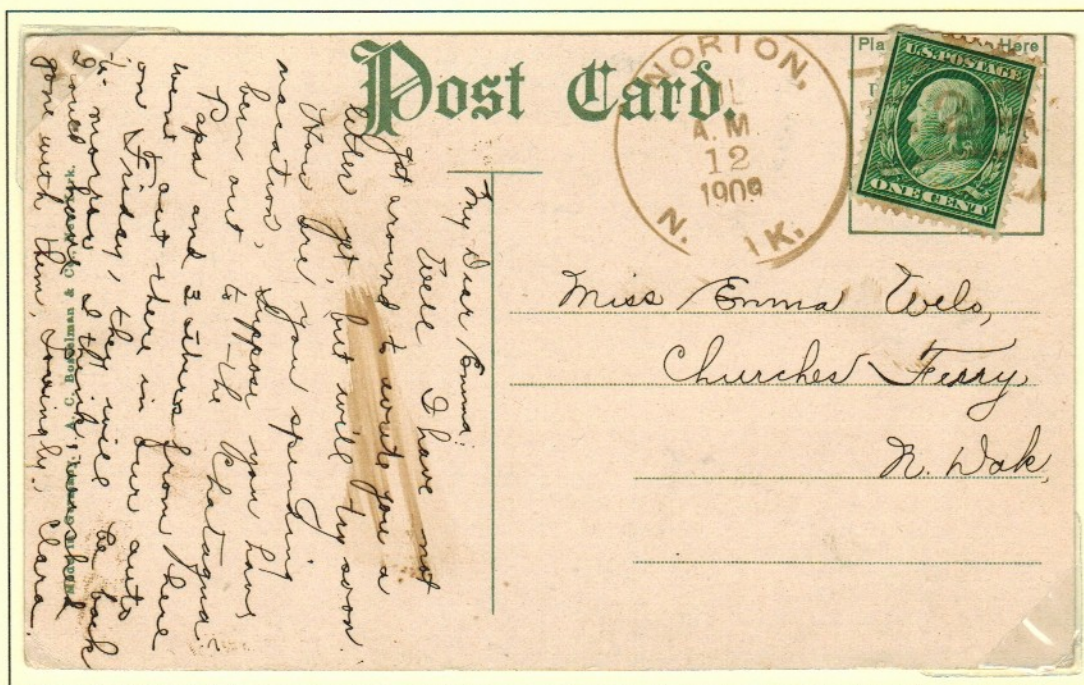 Post Card.
NORTON.
A.M.
12
1909
N.
Here
U.S. POSTAGE
ONE CENT
Miss Emma
Churches Ferry,
N. Dak,
My Dear Emma:
Well I have not
got around to write you a
letter yet but will try soon.
How are you spending
vacation, suppose you have
been out to the Chatagua?
Papa and 3 others from here
went out there in our auto
on Friday, they will be back
to-morrow I think.
gone with them, Lovingly, Clara.
A. C. Bosselman & Co.